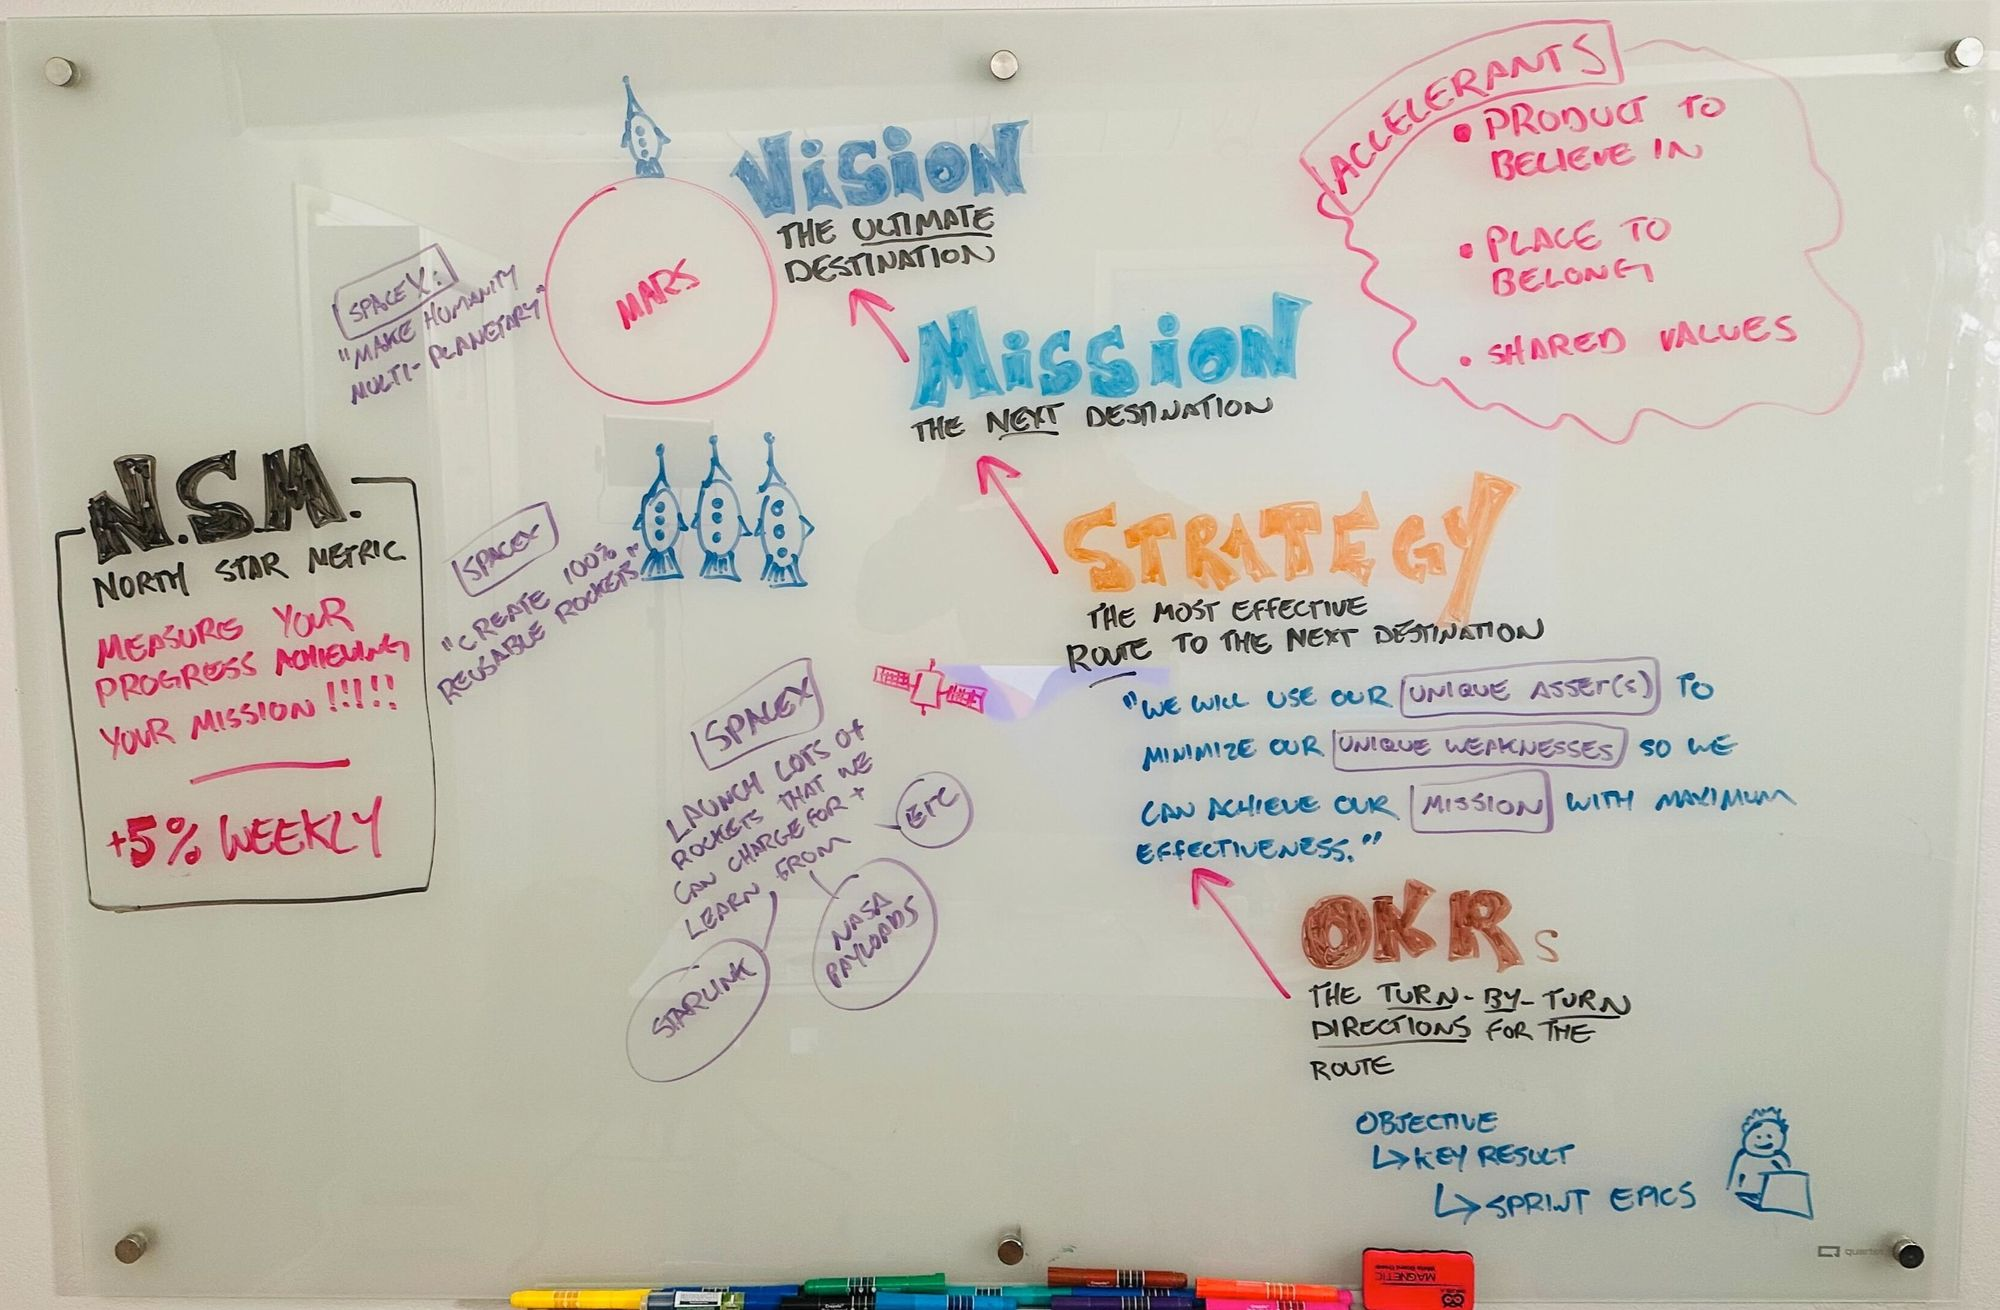 VISION
THE ULTIMATE
DESTINATION
MARS
SPACEX:
"MAKE HUMANITY
MULTI-PLANETARY"
ACCELERANTS
• PRODUCT TO
BELIEVE IN
• PLACE TO
BELONG
• SHARED VALUES
MISSION
THE NEXT DESTINATION
SPACEX
"CREATE 100%
REUSABLE ROCKETS"
N.S.M.
NORTH STAR METRIC
MEASURE YOUR
PROGRESS ACHIEVING
YOUR MISSION!!!!!
+5% WEEKLY
STRATEGY
THE MOST EFFECTIVE
ROUTE TO THE NEXT DESTINATION
"WE WILL USE OUR UNIQUE ASSET(S) TO
MINIMIZE OUR UNIQUE WEAKNESSES SO WE
CAN ACHIEVE OUR MISSION WITH MAXIMUM
EFFECTIVENESS."
SPACEX
LAUNCH LOTS OF
ROCKETS THAT WE
CAN CHARGE FOR +
LEARN FROM
ETC
NASA
PAYLOADS
STARLINK
OKRs
THE TURN-BY-TURN
DIRECTIONS FOR THE
ROUTE
OBJECTIVE
↳ KEY RESULT
↳ SPRINT EPICS
quartet
MAGNETIC